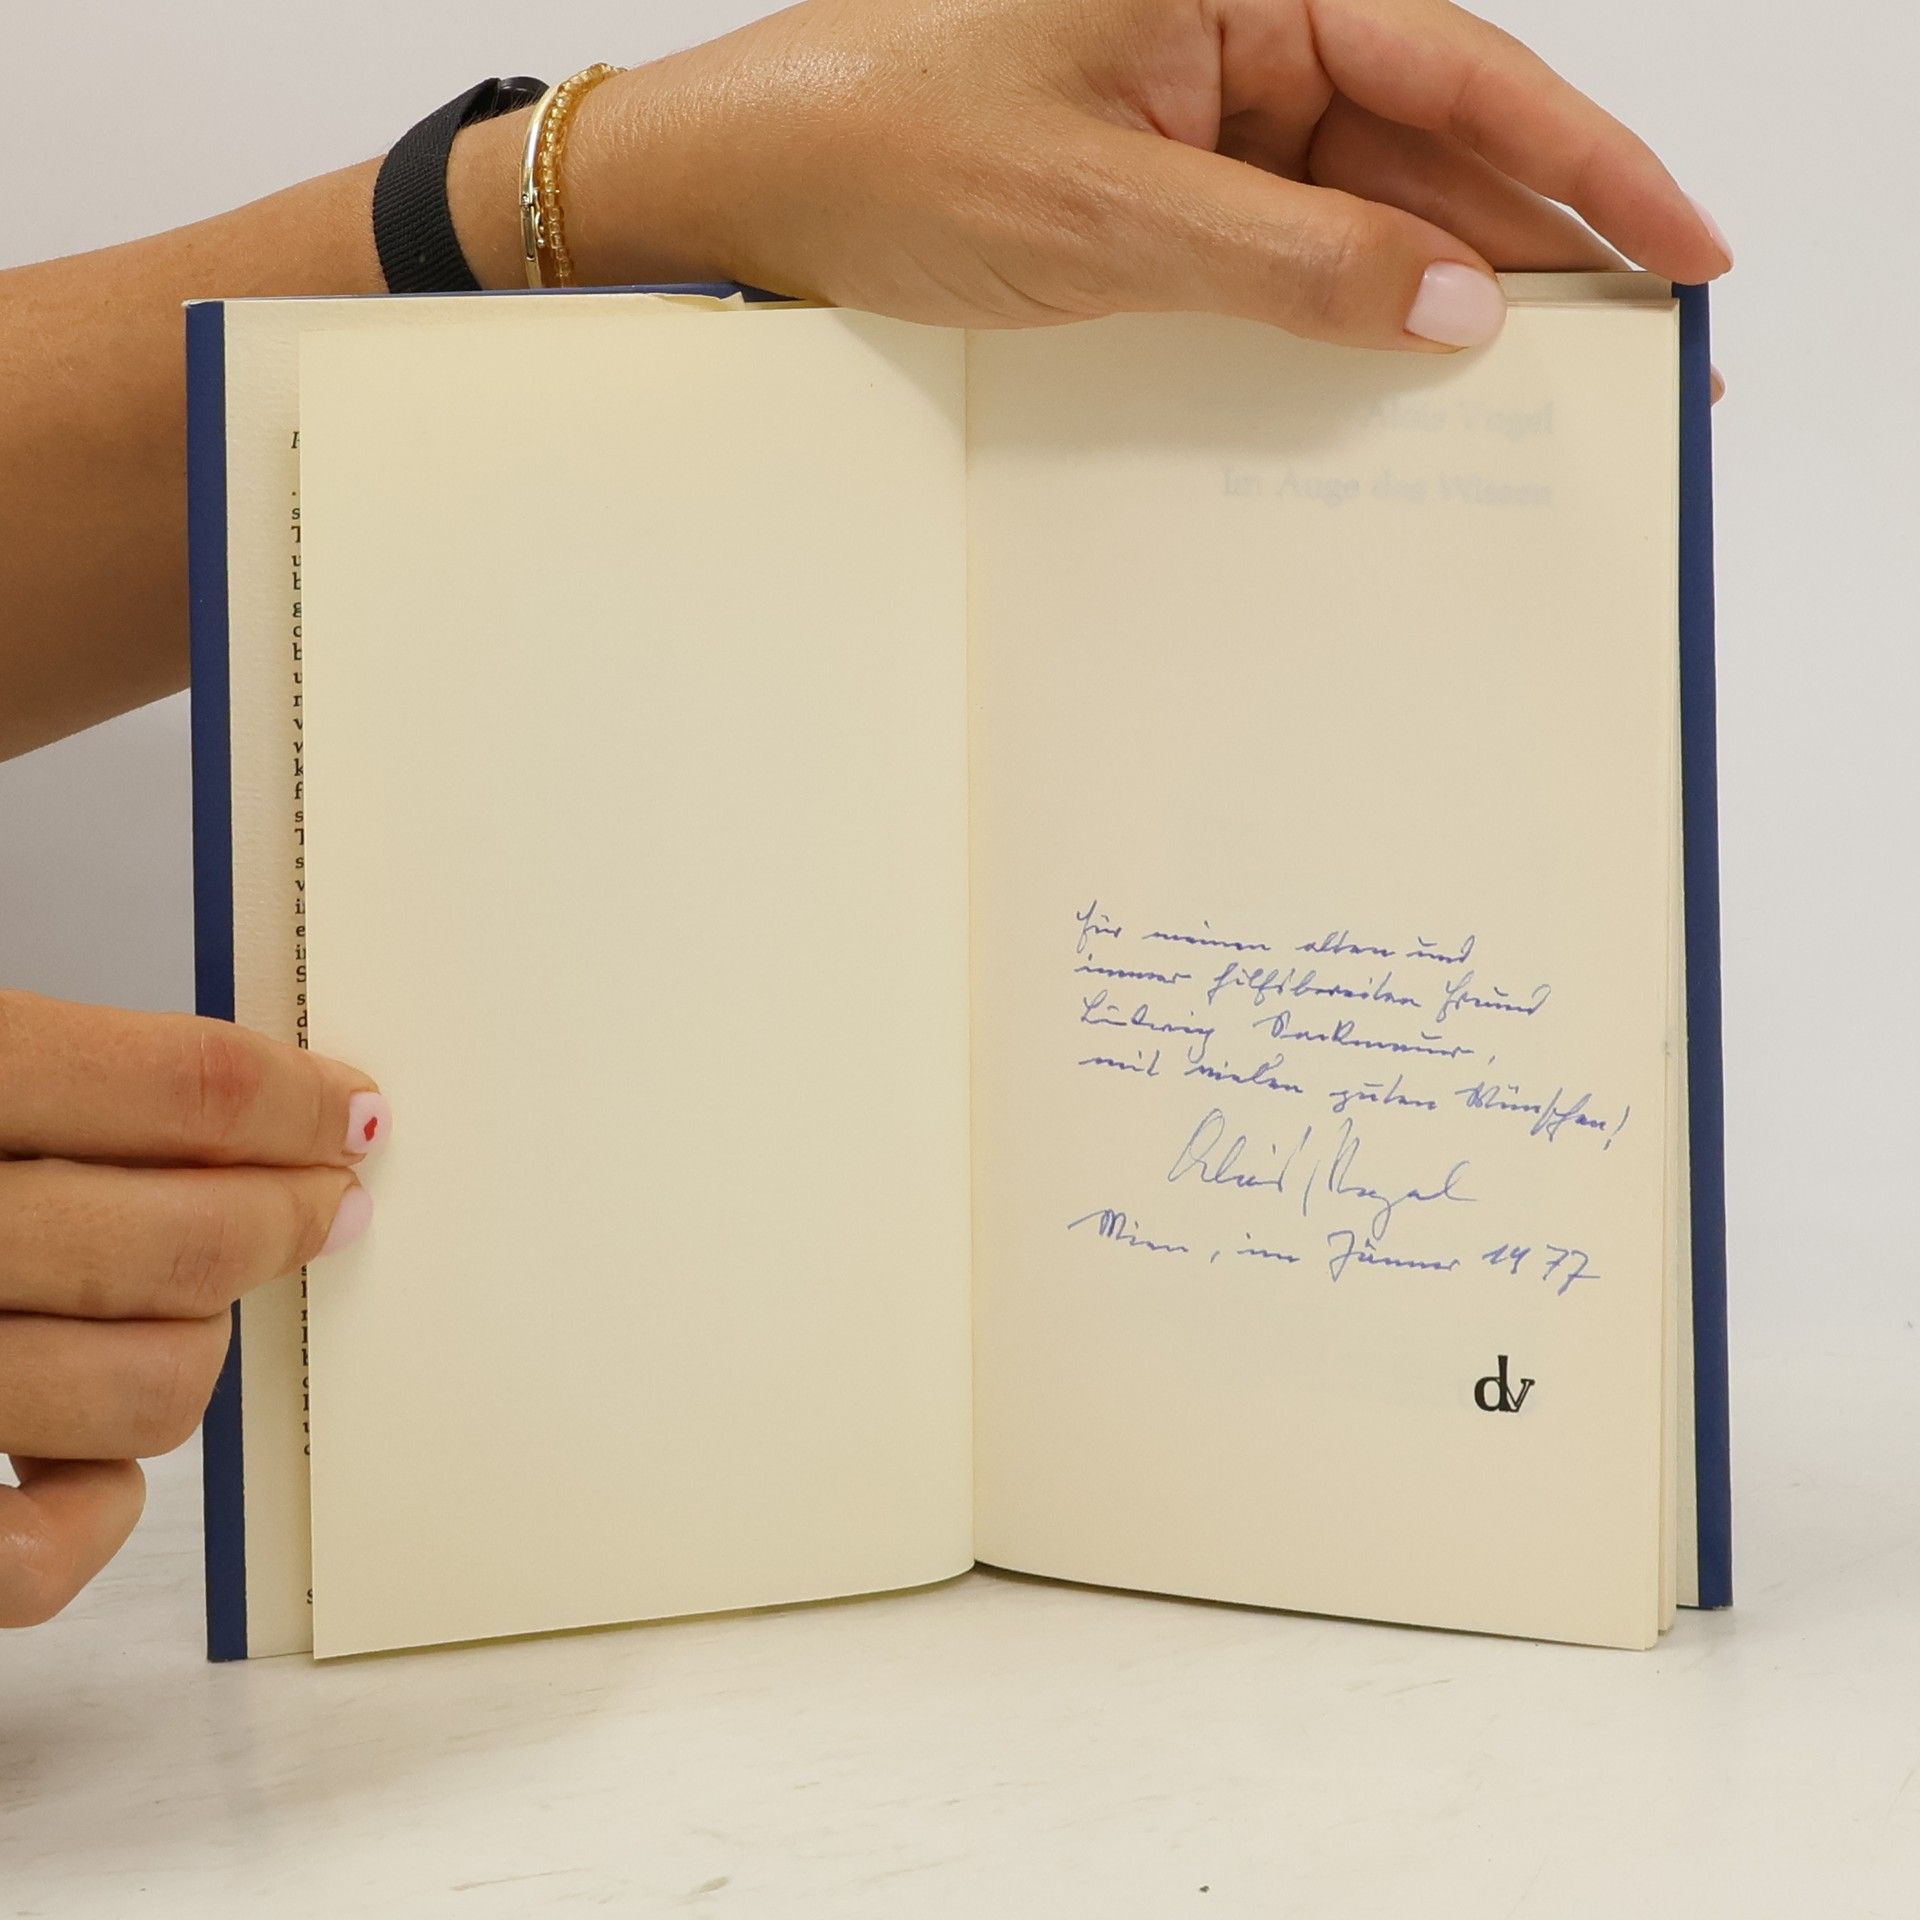 Alois Vogel
Im Auge das Wissen
Für meinen alten und
immer hilfsbereiten Freund
Ludwig
mit vielen guten Wünschen!
Alois Vogel
Wien, im Jänner 1977
dv